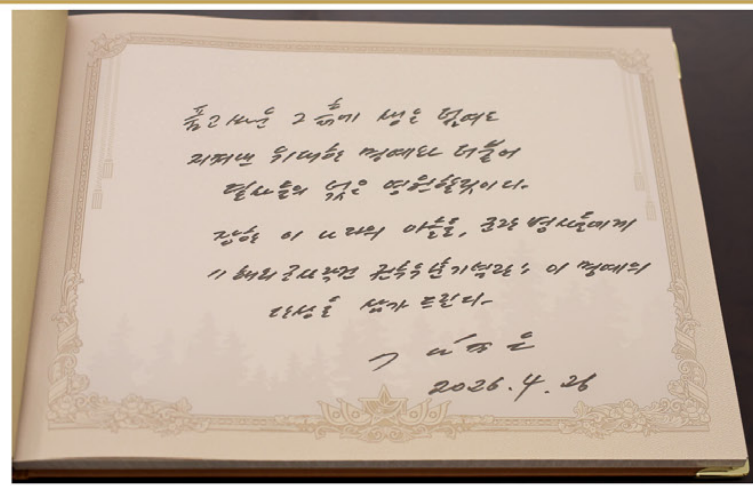 품고싸운 그 흙에 생은 묻혀도
지켜낸 위대한 명예와 더불어
렬사들의 넋은 영원할것이다.
장한 이 나라의 아들들, 군관 병사들에게
《해외군사작전 전투위훈기념관》 이 명예의
단상을 삼가 드린다.
김정은
2026.4.26